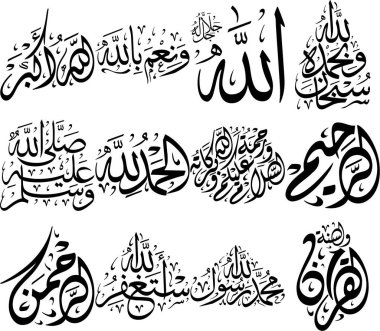 الله أكبر
ونعم بالله
الله جل جلاله
سبحان الله وبحمده
صلى الله عليه وسلم
الحمد لله
السلام عليكم ورحمة الله وبركاته
الرحيم
الرحمن
أستغفر الله
محمد رسول الله